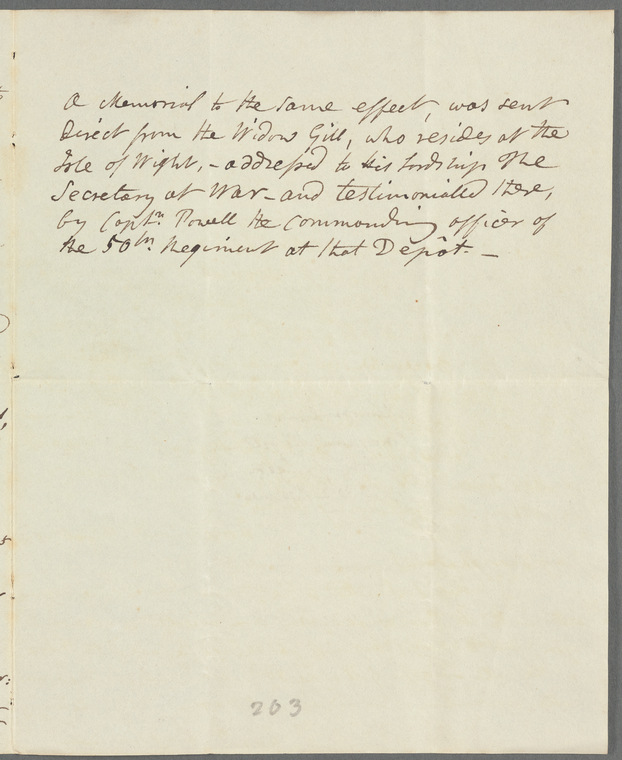 A Memorial to the same effect, was sent
Direct from the Widow Gill, who resides at the
Isle of Wight, - addressed to His Lordship The
Secretary at War - and testimonialled there,
by Captn. Powell the commanding officer of
the 50th. Regiment at that Depôt. -
203